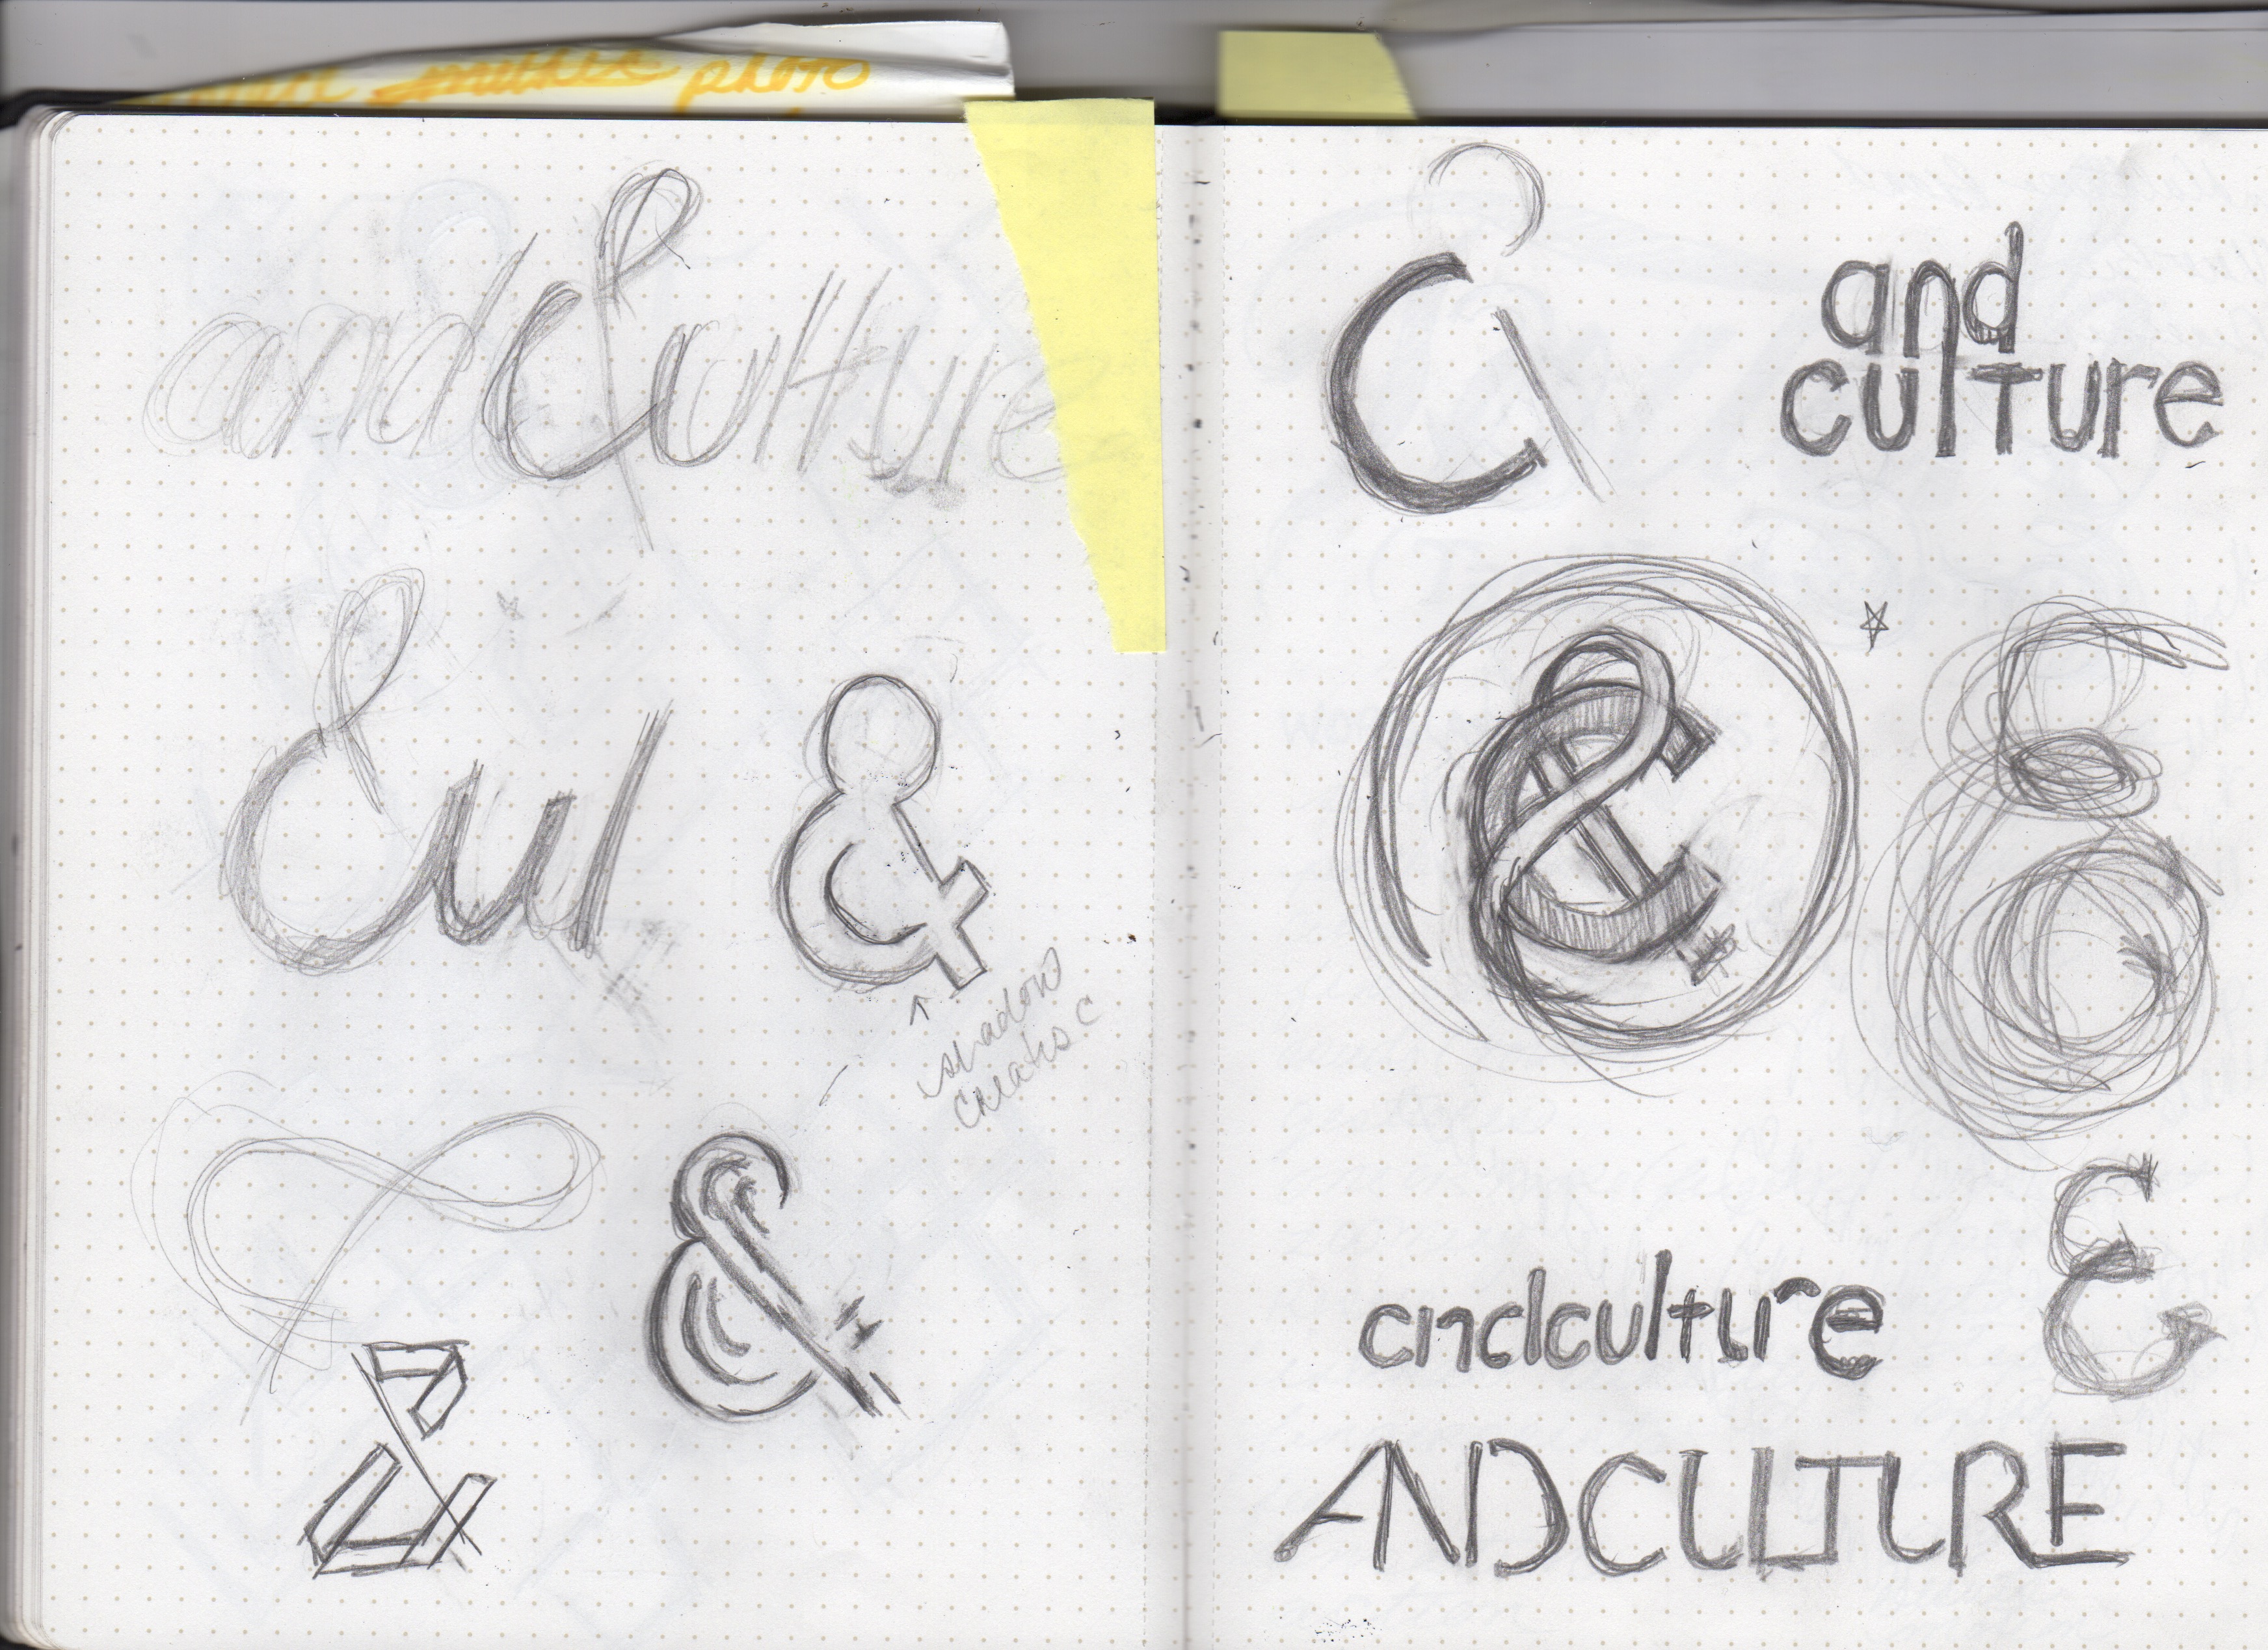 photo
andCulture
Cul
&
shadow
creates C
&
&
and
culture
&
andculture
ANDCULTURE